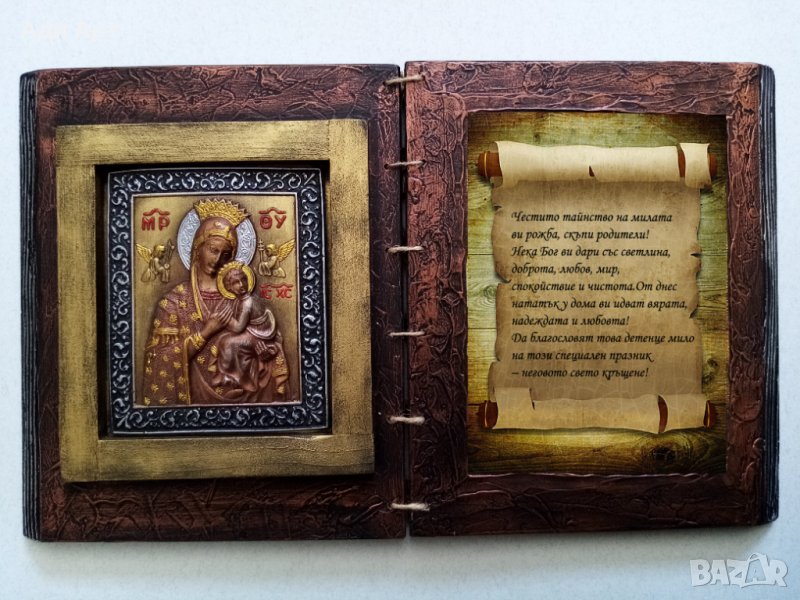 МР
ѲУ
IС ХС
Честито тайнство на милата
ви рожба, скъпи родители!
Нека Бог ви дари със светлина,
доброта, любов, мир,
спокойствие и чистота.От днес
нататък у дома ви идват вярата,
надеждата и любовта!
Да благословят това детенце мило
на този специален празник
– неговото свето кръщене!
BAZAR